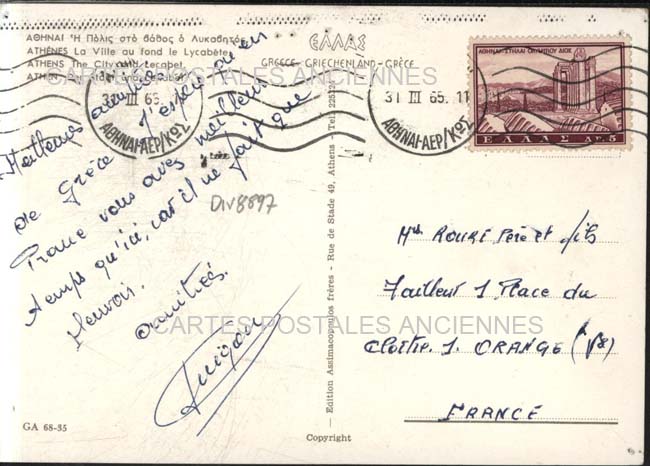 ΑΘΗΝΑΙ Ἡ Πόλις στὸ βάθος ὁ Λυκαβητός
ATHÈNES La Ville au fond le Lycabète
ATHENS The City and Lecabet
ATHEN
ΕΛΛΑΣ
GREECE-GRIECHENLAND-GRÈCE
31 III 65
ΑΘΗΝΑΙ-ΑΕΡ/ΚΩΣ
31 III 65. 11
ΑΘΗΝΑΙ-ΑΕΡ/ΚΩΣ
ΑΘΗΝΑΙ-ΣΤΗΛΑΙ ΟΛΥΜΠΙΟΥ ΔΙΟΣ
ΕΛΛΑΣ ΔΡ. 5
CARTES POSTALES ANCIENNES
Meilleures amitiés
de Grèce. J'espère qu'en
France vous avez meilleur
temps qu'ici, car il ne fait que
pleuvoir.
amitiés.
DIV8897
Edition Assimacopoulos frères - Rue de Stade 49, Athens
Mrs ROURE Père et fils
Tailleur 1 Place du
Cloître. 1. ORANGE
FRANCE
CARTES POSTALES ANCIENNES
GA 68-35
Copyright